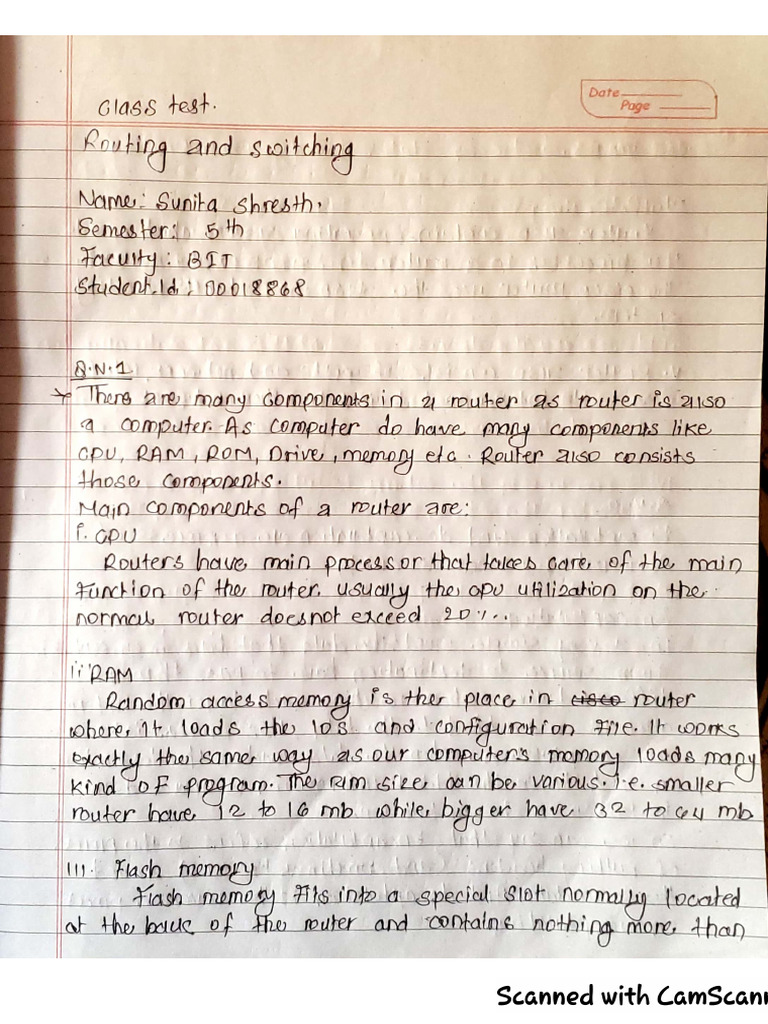 Class test.
Date
Page
Routing and switching
Name: Sunita Shresth.
Semester: 5th
Faculty: BIT
Student.Id: 00018868
Q.N.1
There are many components in a router as router is also
a computer. As computer do have many components like
CPU, RAM, ROM, Drive, memory etc. Router also consists
those components.
Main components of a router are:
i. CPU
Routers have main processor that takes care of the main
function of the router. usually the cpu utilization on the
normal router doesnot exceed 20%.
ii RAM
Random access memory is the place in cisco router
where, it loads the IOS and configuration file. It works
exactly the same way as our computer's memory loads many
kind of program. The RAM size can be various. i.e. smaller
router have 12 to 16 mb while bigger have 32 to 64 mb
III. Flash memory
Flash memory fits into a special slot normally located
at the back of the router and contains nothing more than
Scanned with CamScann